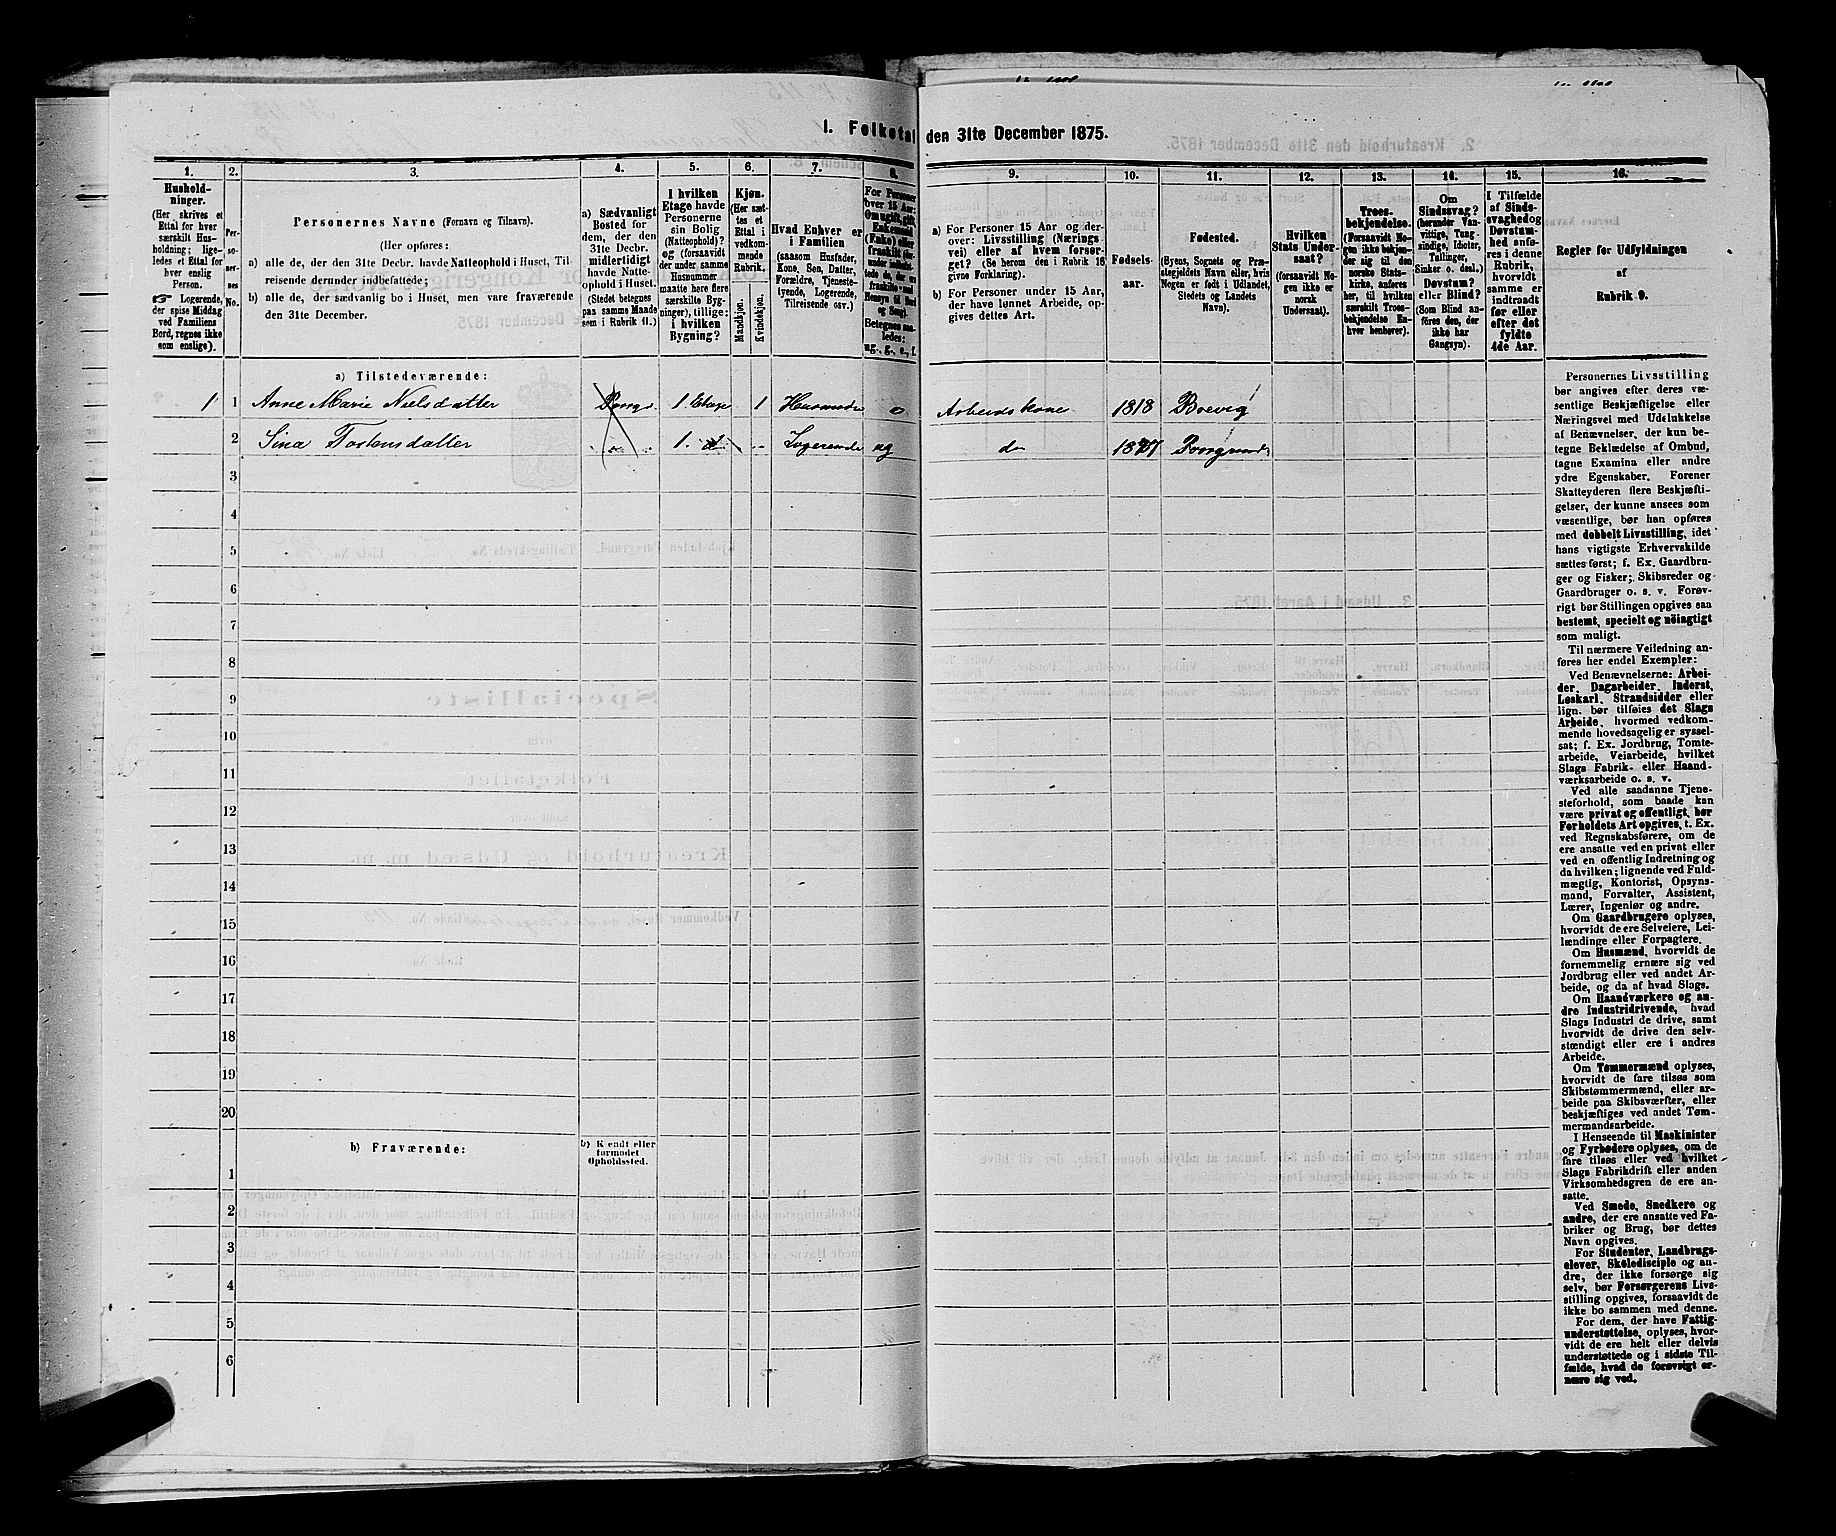 1. Folketal den 31te December 1875.
1.
Hushold-
ninger.
(Her skrives et
Ettal for hver
særskilt Hus-
holdning; lige-
ledes et Ettal for
hver enslig
Person.
☞ Logerende,
der spise Middag
ved Familiens
Bord, regnes ikke
som enslige).
2.
Per-
so-
ner-
nes
No.
3.
Personernes Navne (Fornavn og Tilnavn).
(Her opføres:
a) alle de, der den 31te Decbr. havde Natteophold i Huset, Til-
reisende derunder indbefattede;
b) alle de, der sædvanlig bo i Huset, men vare fraværende
den 31te December.
4.
a) Sædvanligt
Bosted for
dem, der den
31te Decbr.
midlertidigt
havde Natte-
ophold i Huset.
(Stedet betegnes
paa samme Maade
som i Rubrik 11.)
5.
I hvilken
Etage havde
Personerne
sin Bolig
(Natteophold)?
og (forsaavidt
der under samme
Husnummer
maatte høre flere
særskilte Byg-
ninger), tillige:
i hvilken
Bygning?
6.
Kjøn.
(Her sæt-
tes et
Ettal i
vedkom-
mende
Rubrik.
Mandkjøn.
Kvindekjøn.
7.
Hvad Enhver er
i Familien
(saasom Husfader,
Kone, Søn, Datter,
Forældre, Tjeneste-
tyende, Logerende,
Tilreisende osv.)
8.
For Personer
over 15 Aar:
Om ugift, gift,
Enkemand
(Enke) eller
fraskilt
Betegnes saa-
ledes:
ug., g., e., f.
9.
a) For Personer 15 Aar og der-
over: Livsstilling (Nærings-
vei), eller af hvem forsør-
get? (Se herom den i Rubrik 16
givne Forklaring).
b) For Personer under 15 Aar,
der have lønnet Arbeide, op-
gives dettes Art.
10.
Fødsels-
aar.
11.
Fødested.
(Byens, Sognets og Præ-
stegjeldets Navn eller, hvis
Nogen er født i Udlandet,
Stedets og Landets
Navn).
12.
Hvilken
Stats Under-
saat?
(forsaavidt No-
gen ikke er
norsk
Undersaat).
13.
Troes-
bekjendelse.
(Forsaavidt No-
gen ikke bekjen-
der sig til den
norske Stats-
kirke, anføres
her, til hvilken
særskilt Troes-
bekjendelse En-
hver henhører).
14.
Om
Sindssvag?
(herunder Van-
vittige, Tung-
sindige, Idioter,
Tullinger,
Sinker o. desl.)
Døvstum?
eller Blind?
(Som Blind an-
føres den, der
ikke har
Gangsyn).
15.
I Tilfælde
af Sinds-
svaghed og
Døvstum-
hed anfø-
res i denne
Rubrik,
hvorvidt
samme er
indtraadt
før eller
efter det
fyldte
4de Aar.
16.
Regler for Udfyldningen
af
Rubrik 9.
a) Tilstedeværende:
1 1 Anne Marie Nielsdatter Porsgr. 1 Etage 1 Husmoder e Arbeidskone 1818 Brevig
2 Sina Torstensdatter " 1. d " Logerende ug do 1827 Porsgrund
3
4
5
6
7
8
9
10
11
12
13
14
15
16
17
18
19
20
b) Fraværende:
b) Kjendt eller
formodet
Opholdssted.
1
2
3
4
5
6
Personernes Livsstilling
bør angives efter deres væ-
sentlige Beskjæftigelse eller
Næringsvei med Udelukkelse
af Benævnelser, der kun be-
tegne Beklædelse af Ombud,
tagne Examina eller andre
ydre Egenskaber. Forener
Skatteyderen flere Beskjæfti-
gelser, der kunne ansees som
væsentlige, bør han opføres
med dobbelt Livsstilling, idet
hans vigtigste Erhvervskilde
sættes først; f. Ex. Gaardbru-
ger og Fisker; Skibsreder og
Gaardbruger o. s. v. Forøv-
rigt bør Stillingen opgives saa
bestemt, specielt og nöiagtigt
som muligt.
Til nærmere Veiledning an-
føres her endel Exempler:
Ved Benævnelserne: Arbei-
der, Dagarbeider, Inderst,
Løskarl, Strandsidder eller
lign. bør tilføies det Slags
Arbeide, hvormed vedkom-
mende hovedsagelig er syssel-
sat; f. Ex. Jordbrug, Tomte-
arbeide, Veiarbeide, hvilket
Slags Fabrik- eller Haand-
værksarbeide o. s. v.
Ved alle saadanne Tjene-
steforhold, som baade kan
være privat og offentligt, bør
Forholdets Art opgives, t. Ex.
ved Regnskabsførere, om de
ere ansatte ved en privat eller
ved en offentlig Indretning og
da hvilken; lignende ved Fuld-
mægtig, Kontorist, Opsyns-
mand, Forvalter, Assistent,
Lærer, Ingeniør og andre.
Om Gaardbrugere oplyses,
hvorvidt de ere Selveiere, Lei-
lændinge eller Forpagtere.
Om Husmænd, hvorvidt de
fornemmelig ernære sig ved
Jordbrug eller ved andet Ar-
beide, og da af hvad Slags.
Om Haandværkere og an-
dre Industridrivende, hvad
Slags Industri de drive, samt
hvorvidt de drive den selv-
stændigt eller ere i andres
Arbeide.
Om Tømmermænd oplyses,
hvorvidt de fare tilsøs som
Skibstømmermænd, eller ar-
beide paa Skibsværfter, eller
beskjæftiges ved andet Tøm-
mermandsarbeide.
I Henseende til Maskinister
og Fyrbødere oplyses, om de
fare tilsøs eller ved hvilket
Slags Fabrikdrift eller anden
Virksomhedsgren de ere an-
satte.
Ved Smede, Snedkere og
andre, der ere ansatte ved Fa-
briker og Brug, bør dettes
Navn opgives.
For Studenter, Landbrugs-
elever, Skoledisciple og an-
dre, der ikke forsørge sig
selv, bør Forsørgerens Livs-
stilling opgives, forsaavidt de
ikke bo sammen med denne.
For dem, der have Fattig-
understøttelse, oplyses, hvor-
vidt de ere helt eller delvis
understøttede og i sidste Til-
fælde, hvad de forøvrigt er-
nære sig ved.